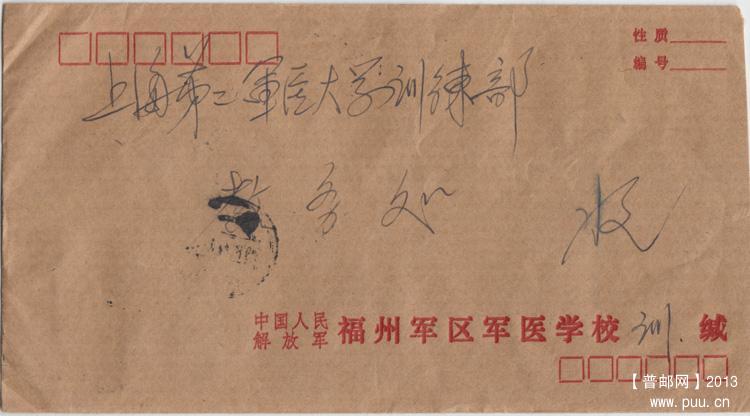 性质
编号
上海第二軍医大学训练部
教务处 收
中国人民
解放军 福州军区军医学校训 缄
【普邮网】2013
www.puu.cn